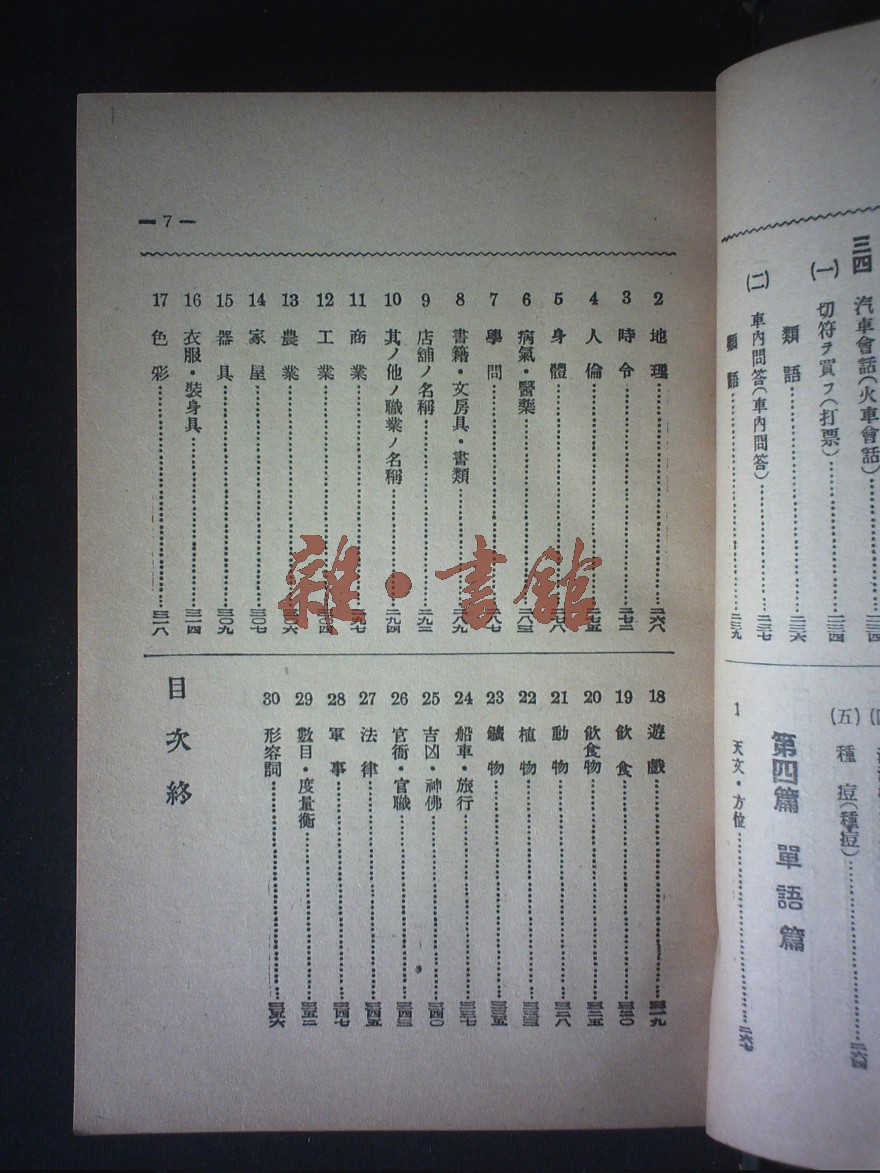 三四 汽車會話(火車會話)
(一) 切符ヲ買フ(打票)……二三四
類語……二三六
(二) 車內問答(車內問答)……二三七
類語……二三九
(五) 種痘(種痘)……二六四
第四篇 單語篇
1 天文・方位……二六七
— 7 —
2 地理……二六八
3 時令……二七二
4 人倫……二七五
5 身體……二七八
6 病氣・醫藥……二八三
7 學問……二八七
8 書籍・文房具・書類……二八九
9 店舖ノ名稱……二九二
10 其ノ他ノ職業ノ名稱……二九四
11 商業……二九七
12 工業……三〇四
13 農業……三〇六
14 家屋……三〇七
15 器具……三〇九
16 衣服・裝身具……三一四
17 色彩……三一八
18 遊戲……三一九
19 飮食……三二〇
20 飮食物……三二五
21 動物……三二八
22 植物……三三三
23 鑛物……三三五
24 船車・旅行……三三七
25 吉凶・神佛……三四〇
26 官衙・官職……三四三
27 法律……三四五
28 軍事……三四七
29 數目・度量衡……三五二
30 形容詞……三五六
目次終
雜・書館